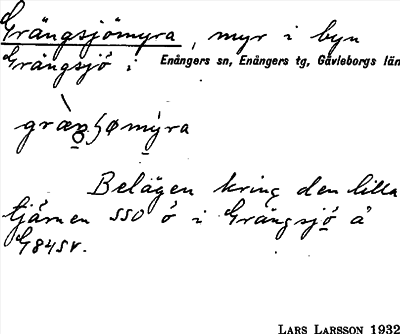 Grängsjömyra, myr i byn
Grängsjö i Enångers sn, Enångers tg, Gävleborgs län
Belägen kring den lilla
tjärnen SSO ö i Grängsjö å
G84SV.
LARS LARSSON 1932